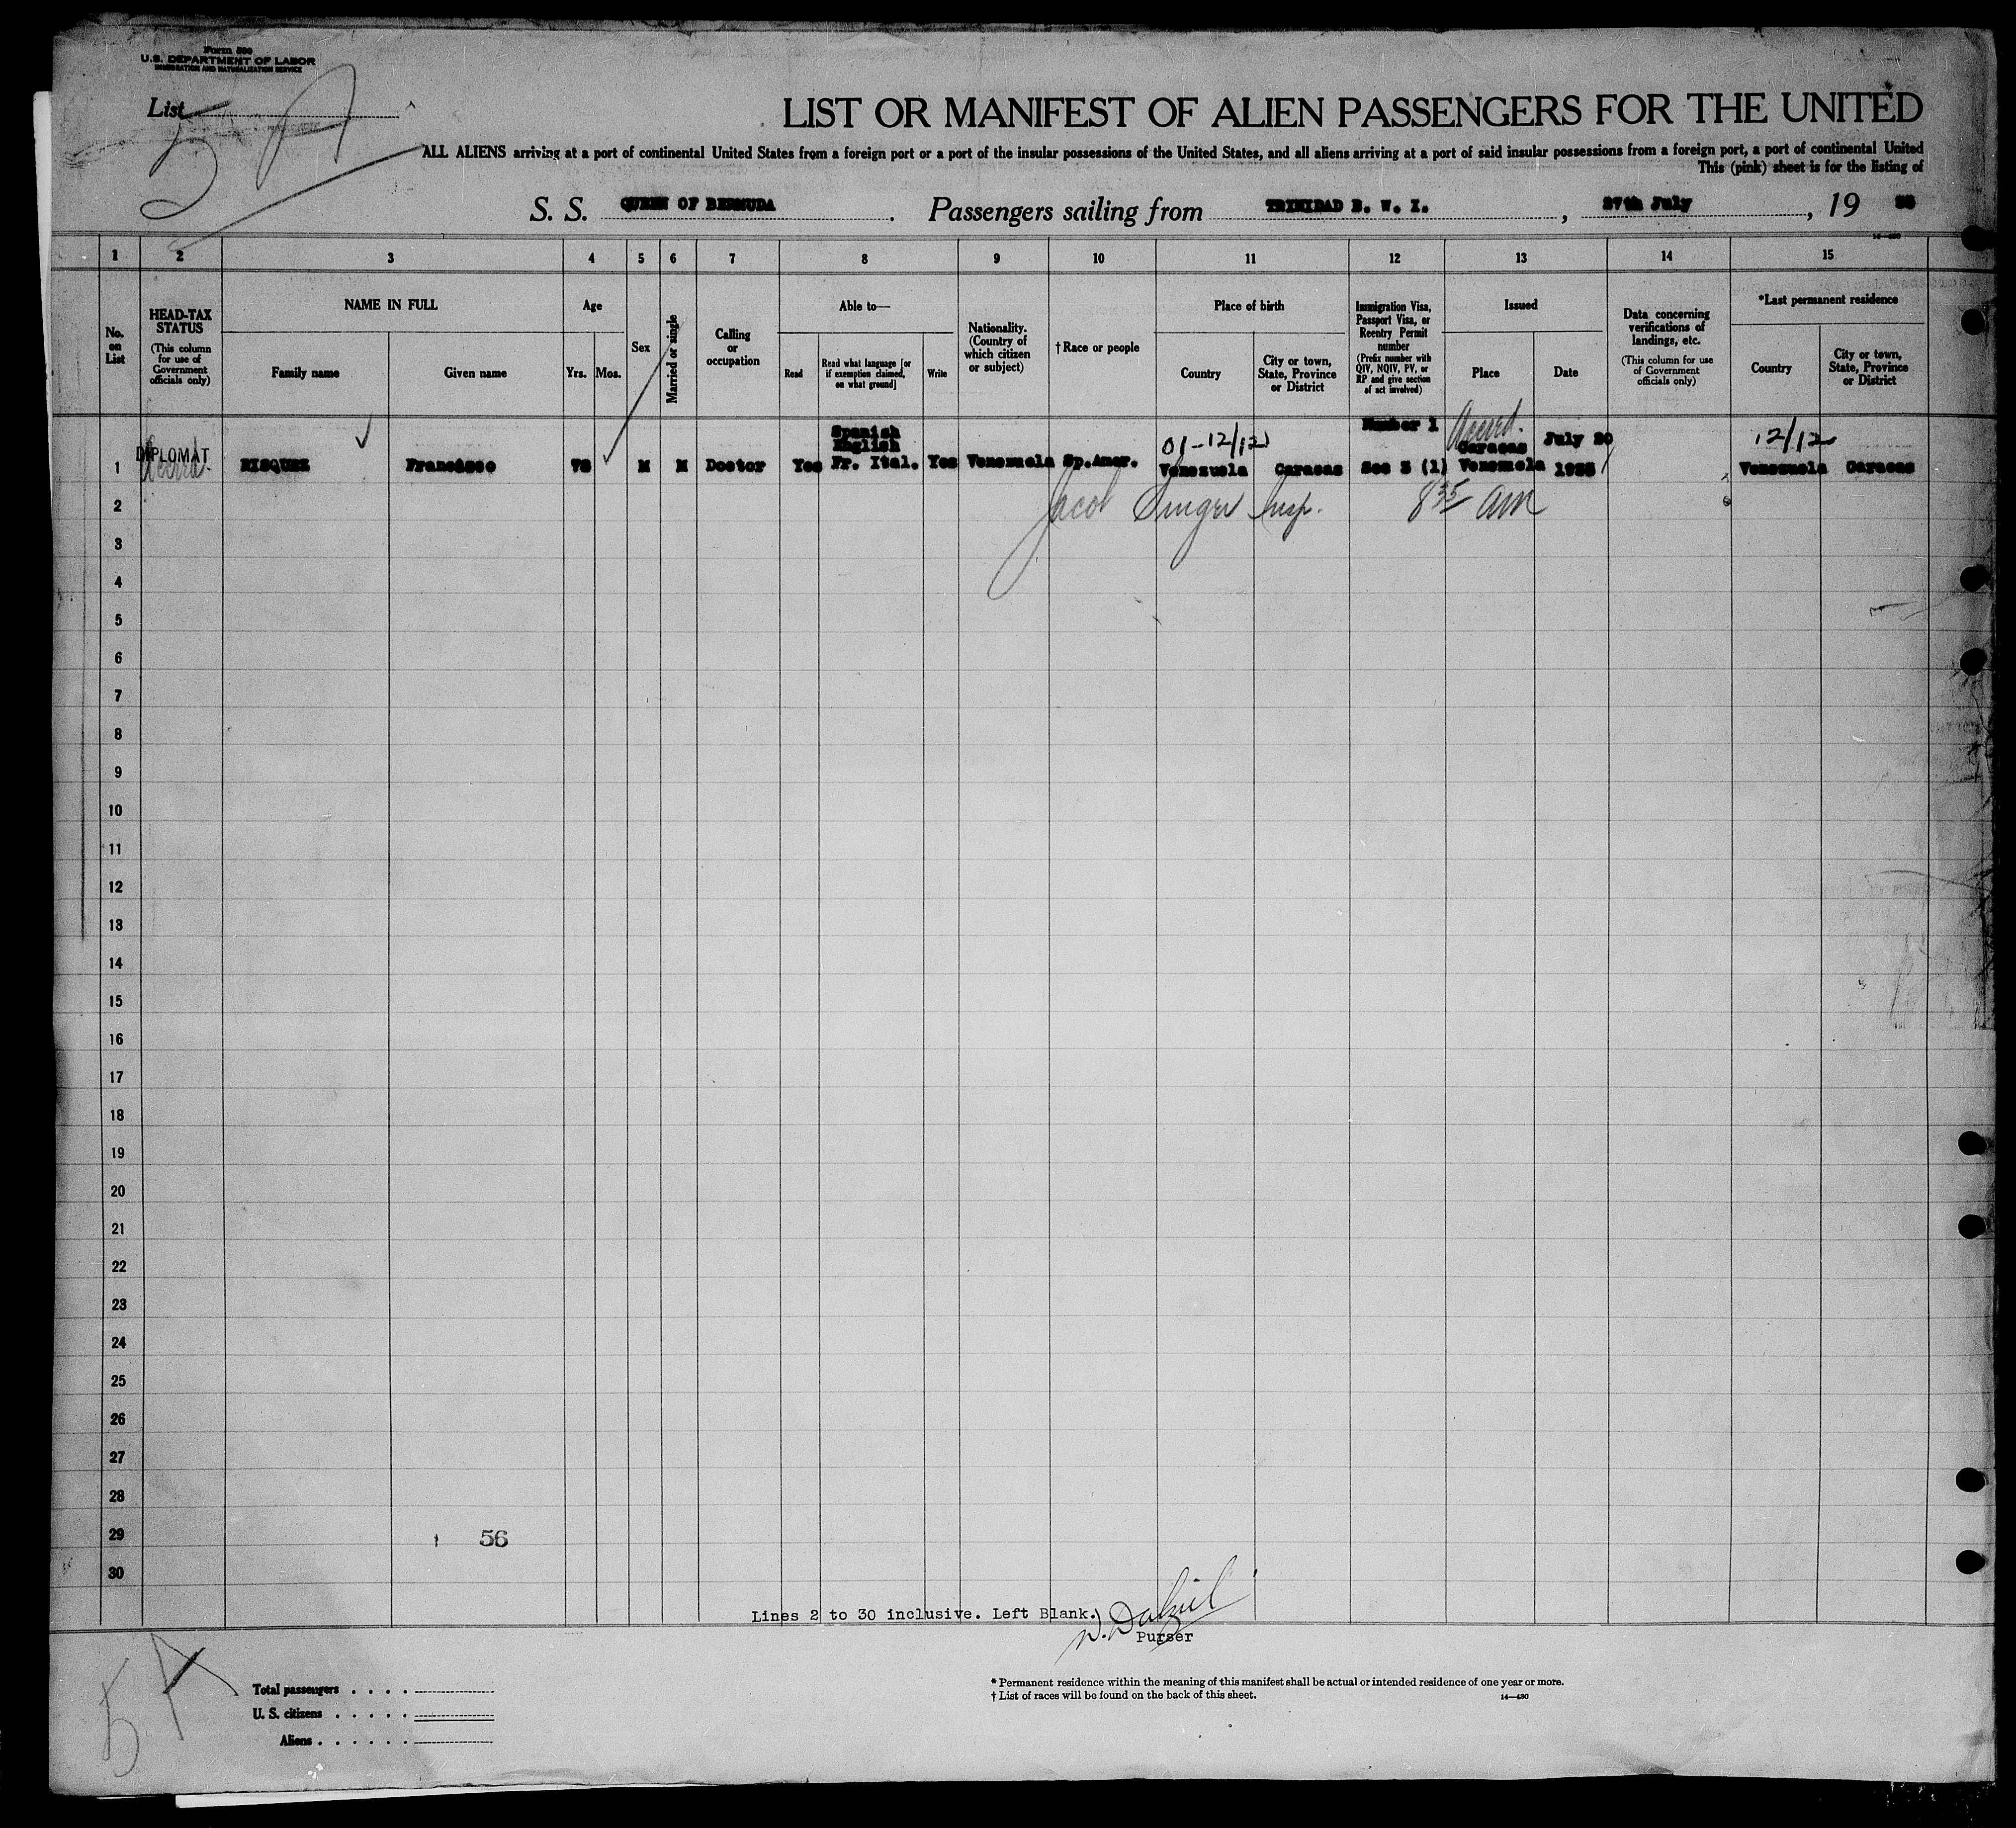 Form 500
U.S. DEPARTMENT OF LABOR
IMMIGRATION AND NATURALIZATION SERVICE
List
5 A
LIST OR MANIFEST OF ALIEN PASSENGERS FOR THE UNITED
ALL ALIENS arriving at a port of continental United States from a foreign port or a port of the insular possessions of the United States, and all aliens arriving at a port of said insular possessions from a foreign port, a port of continental United
This (pink) sheet is for the listing of
S. S. QUEEN OF BERMUDA. Passengers sailing from TRINIDAD B. W. I., 27th July, 19
1 2 3 4 5 6 7 8 9 10 11 12 13 14 15
No. on List
HEAD-TAX STATUS (This column for use of Government officials only)
NAME IN FULL
Family name
Given name
Age
Yrs. Mos.
Sex
Married or single
Calling or occupation
Able to—
Read
Read what language [or if exemption claimed, on what ground]
Write
Nationality. (Country of which citizen or subject)
†Race or people
Place of birth
Country
City or town, State, Province or District
Immigration Visa, Passport Visa, or Reentry Permit number (Prefix number with QIV, NQIV, PV, or RP and give section of act involved)
Issued
Place
Date
Data concerning verifications of landings, etc. (This column for use of Government officials only)
*Last permanent residence
Country
City or town, State, Province or District
Spanish
English
01-12/12
Number 1
Caracas
July 20
12/12
DIPLOMAT
1 RISQUEZ Francisco M M Doctor Yes Fr. Ital. Yes Venezuela Sp.Amer. Venezuela Caracas Sec 3 (1) Venezuela Venezuela Caracas
2 Jacob Singer Insp. 8 35 am
3
4
5
6
7
8
9
10
11
12
13
14
15
16
17
18
19
20
21
22
23
24
25
26
27
28
29 56
30
Lines 2 to 30 inclusive. Left Blank.)
Purser
5 A
Total passengers
U. S. citizens
Aliens
* Permanent residence within the meaning of this manifest shall be actual or intended residence of one year or more.
† List of races will be found on the back of this sheet.
14—430